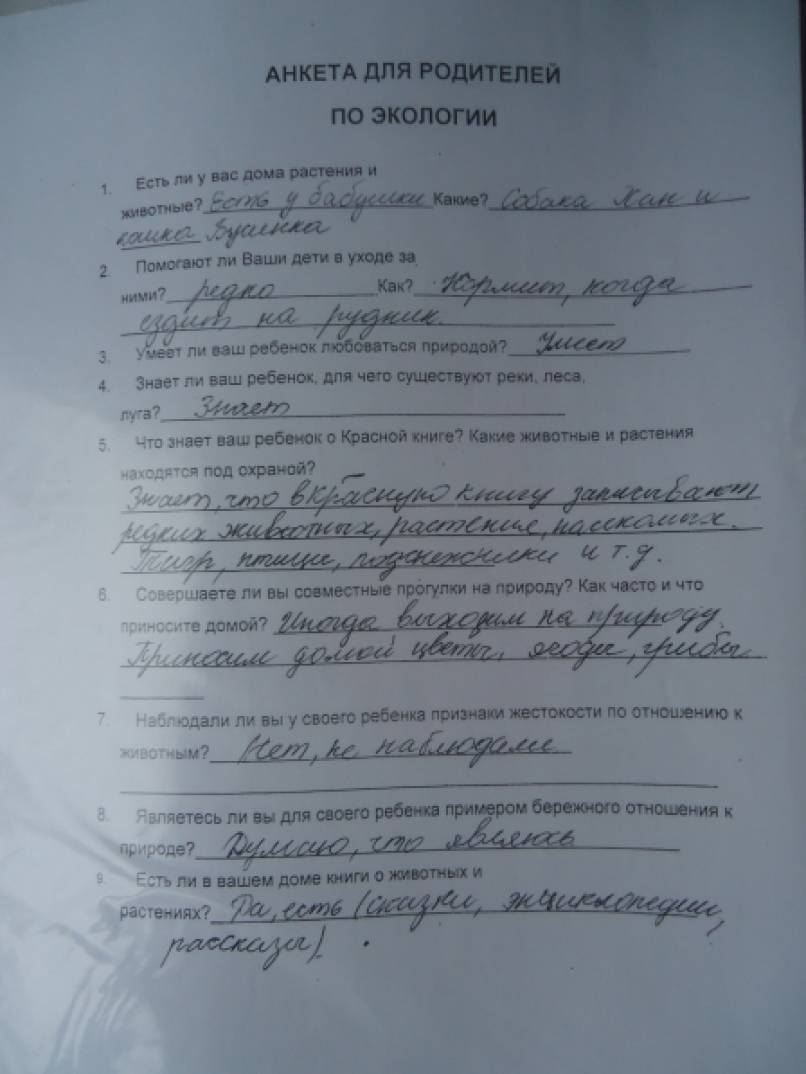 АНКЕТА ДЛЯ РОДИТЕЛЕЙ
ПО ЭКОЛОГИИ
1. Есть ли у вас дома растения и
животные? Есть у бабушки Какие? Собака Хан и
кошка
2. Помогают ли Ваши дети в уходе за
ними? редко Как? Кормит, когда
ездит на рудник.
3. Умеет ли ваш ребенок любоваться природой? Умеет
4. Знает ли ваш ребенок, для чего существуют реки, леса,
луга? Знает
5. Что знает ваш ребенок о Красной книге? Какие животные и растения
находятся под охраной?
Знает, что в красную книгу записывают
редких животных, растения, насекомых.
Тигр, птицы, подснежники и т.д.
6. Совершаете ли вы совместные прогулки на природу? Как часто и что
приносите домой? Иногда выходим на природу.
Приносим домой цветы, ягоды, грибы
7. Наблюдали ли вы у своего ребенка признаки жестокости по отношению к
животным? Нет, не наблюдали
8. Являетесь ли вы для своего ребенка примером бережного отношения к
природе? Думаю, что являюсь
9. Есть ли в вашем доме книги о животных и
растениях? Да, есть (сказки, энциклопедии,
рассказы).